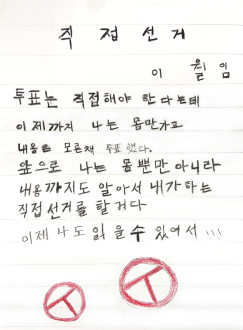 직접선거
이월임
투표는 직접해야 한다는데
이제까지 나는 몸만가고
내용은 모른채 투표 했다.
앞으로 나는 몸뿐만 아니라
내용까지도 알아서 내가하는
직접선거를 할거다
이제 나도 읽을수 있어서 !!!